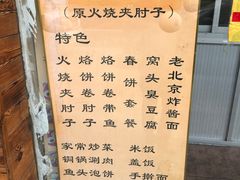 （原火烧夹肘子）
特色
火烧夹肘子
烙饼卷肘子
烙饼卷带鱼
春饼套餐
窝头臭豆腐
老北京炸酱面
家常
铜锅涮肉
鱼头泡饼
米饭
盖饭
手擀面